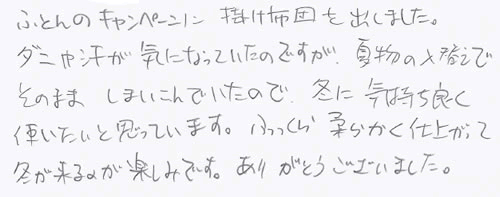 ふとんのキャンペーンに 掛け布団を出しました。
ダニや汗が気になっていたのですが、夏物の入替えで
そのまま しまいこんでいたので、冬に気持ち良く
使いたいと思っています。ふっくら 柔らかく仕上がって
冬が来るのが楽しみです。ありがとうございました。